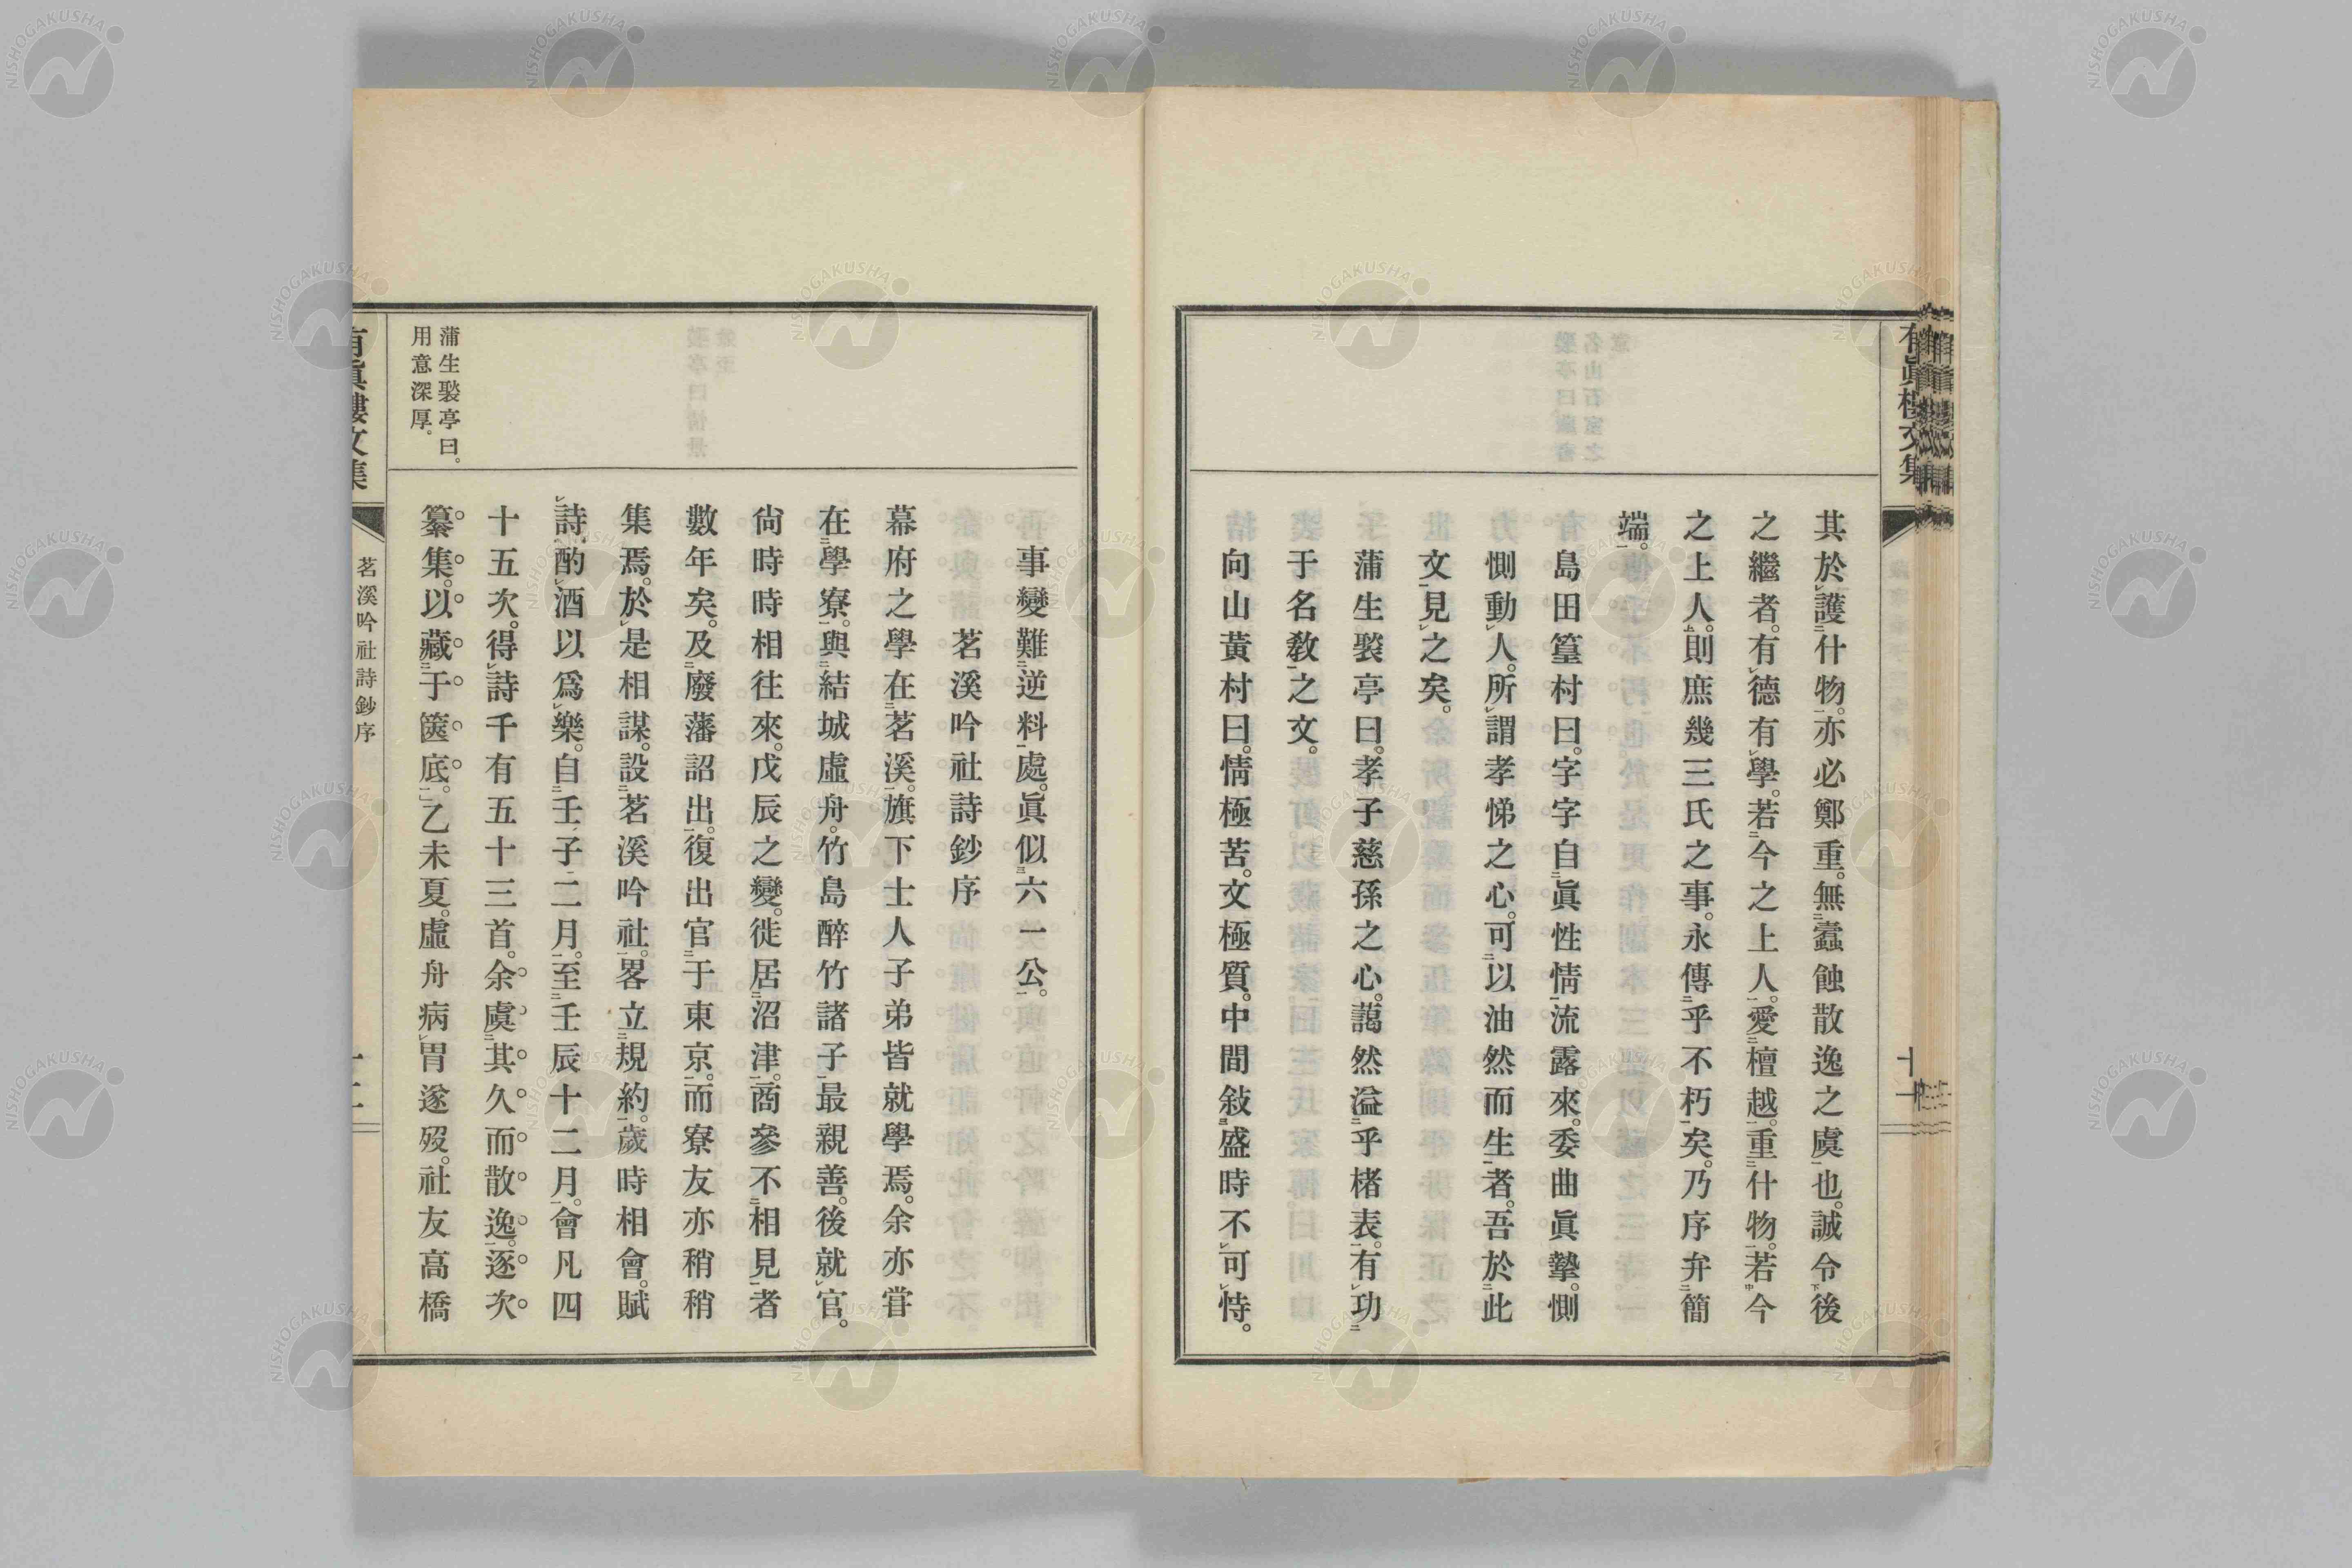 有眞樓文集
其於護什物。亦必鄭重。無蠧蝕散逸之虞也。誠令後
之繼者。有德有學。若今之上人。愛檀越。重什物。若今
之上人。則庶幾三氏之事。永傳乎不朽矣。乃序弁簡
端。
島田篁村曰。字字自眞性情流露來。委曲眞摯。惻
惻動人。所謂孝悌之心。可以油然而生者。吾於此
文見之矣。
蒲生褧亭曰。孝子慈孫之心。藹然溢乎楮表。有功
于名敎之文。
向山黃村曰。情極苦。文極質。中間敍盛時不可恃。
事變難逆料處。眞似六一公。
茗溪吟社詩鈔序
幕府之學在茗溪。旗下士人子弟皆就學焉。余亦甞
在學寮。與結城虛舟。竹島醉竹諸子最親善。後就官。
尙時時相往來。戊辰之變。徙居沼津。商參不相見者
數年矣。及廢藩詔出。復出官于東京。而寮友亦稍稍
集焉。於是相謀。設茗溪吟社。畧立規約。歲時相會。賦
詩酌酒以爲樂。自壬子二月。至壬辰十二月。會凡四
十五次。得詩千有五十三首。余虞其久而散逸。逐次
纂集。以藏于篋底。乙未夏。虛舟病胃遂歿。社友高橋
蒲生褧亭曰。
用意深厚。
有眞樓文集
茗溪吟社詩鈔序
NISHOGAKUSHA